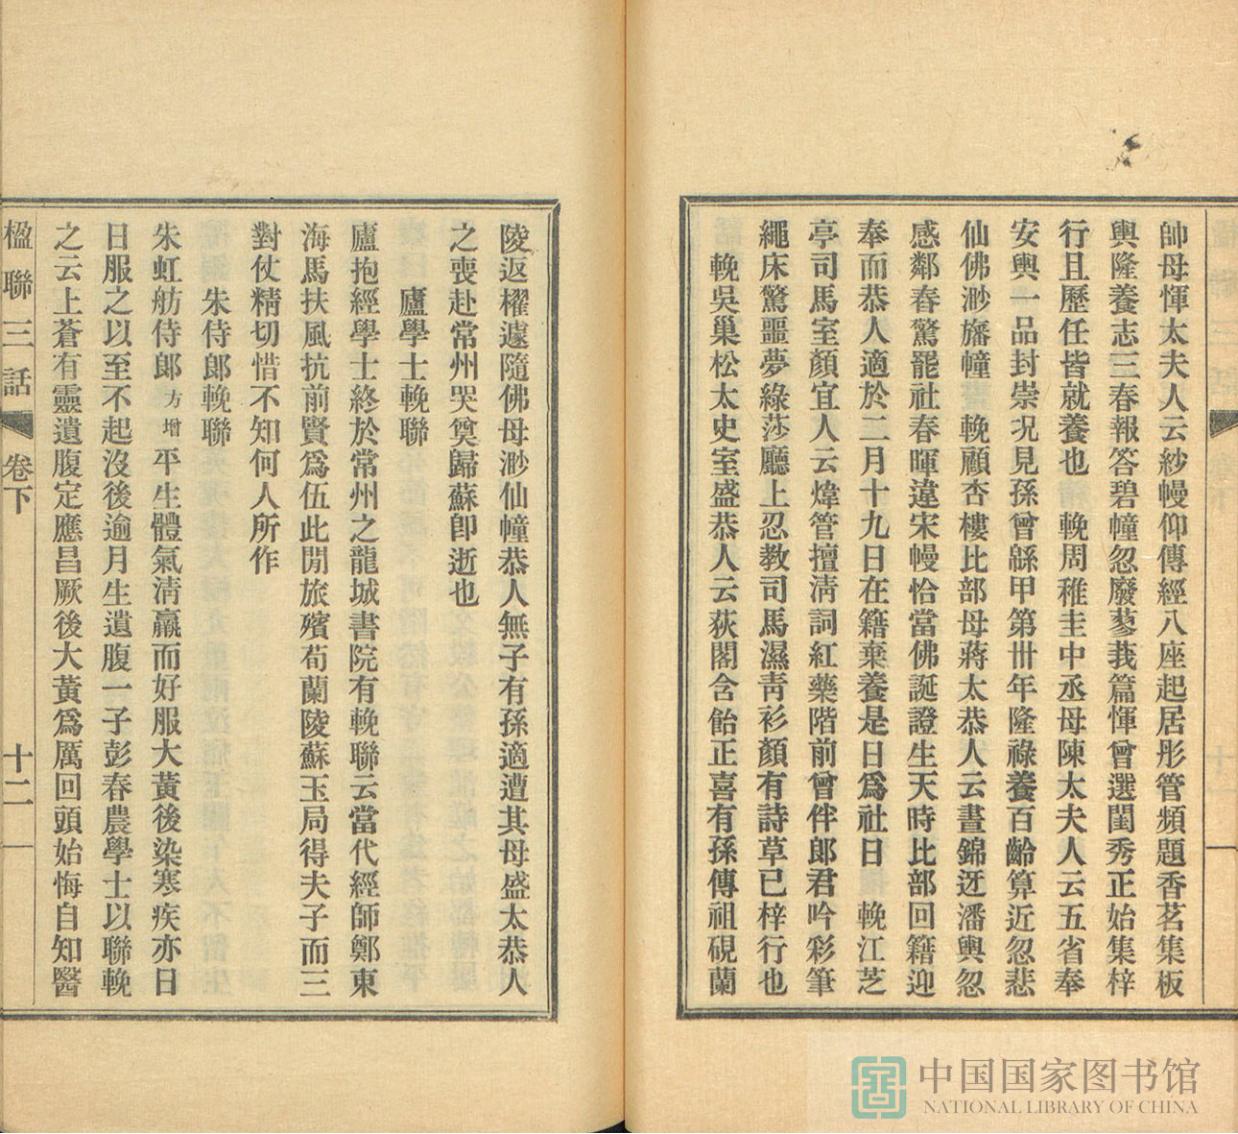 帥母惲太夫人云紗幔仰傳經八座起居彤管頻題香茗集板
輿隆養志三春報答碧幢忽廢蓼莪篇惲曾選閨秀正始集梓
行且歷任皆就養也　輓周稚圭中丞母陳太夫人云五省奉
安輿一品封崇况見孫曾緜甲第卅年隆祿養百齡算近忽悲
仙佛渺旛幢　輓顧杏樓比部母蔣太恭人云晝錦迓潘輿忽
感鄰春驚罷社春暉違宋幔恰當佛誕證生天時比部回籍迎
奉而恭人適於二月十九日在籍棄養是日爲社日　輓江芝
亭司馬室顏宜人云煒管擅清詞紅藥階前曾伴郎君吟彩筆
繩床驚噩夢綠莎廳上忍教司馬濕靑衫顏有詩草已梓行也
輓吳巢松太史室盛恭人云荻閣含飴正喜有孫傳祖硯蘭
陵返櫂遽隨佛母渺仙幢恭人無子有孫適遭其母盛太恭人
之喪赴常州哭奠歸蘇卽逝也
廬學士輓聯
廬抱經學士終於常州之龍城書院有輓聯云當代經師鄭東
海馬扶風抗前賢爲伍此閒旅殯荀蘭陵蘇玉局得夫子而三
對仗精切惜不知何人所作
朱侍郎輓聯
朱虹舫侍郎方增平生體氣淸羸而好服大黃後染寒疾亦日
日服之以至不起沒後逾月生遺腹一子彭春農學士以聯輓
之云上蒼有靈遺腹定應昌厥後大黃爲厲回頭始悔自知醫
楹聯三話　卷下　十二
中国国家图书馆
NATIONAL LIBRARY OF CHINA